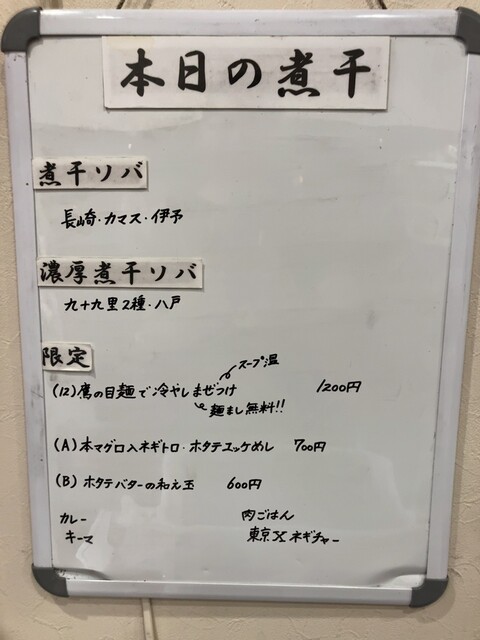 本日の煮干
煮干ソバ
長崎・カマス・伊予
濃厚煮干ソバ
九十九里2種・八戸
限定
スープ温
(12)鷹の目麺で冷やしまぜつけ 1200円
麺まし無料!!
(A)本マグロ入ネギトロ・ホタテユッケめし 700円
(B)ホタテバターの和え玉 600円
カレー 肉ごはん
キーマ 東京Xネギチャー